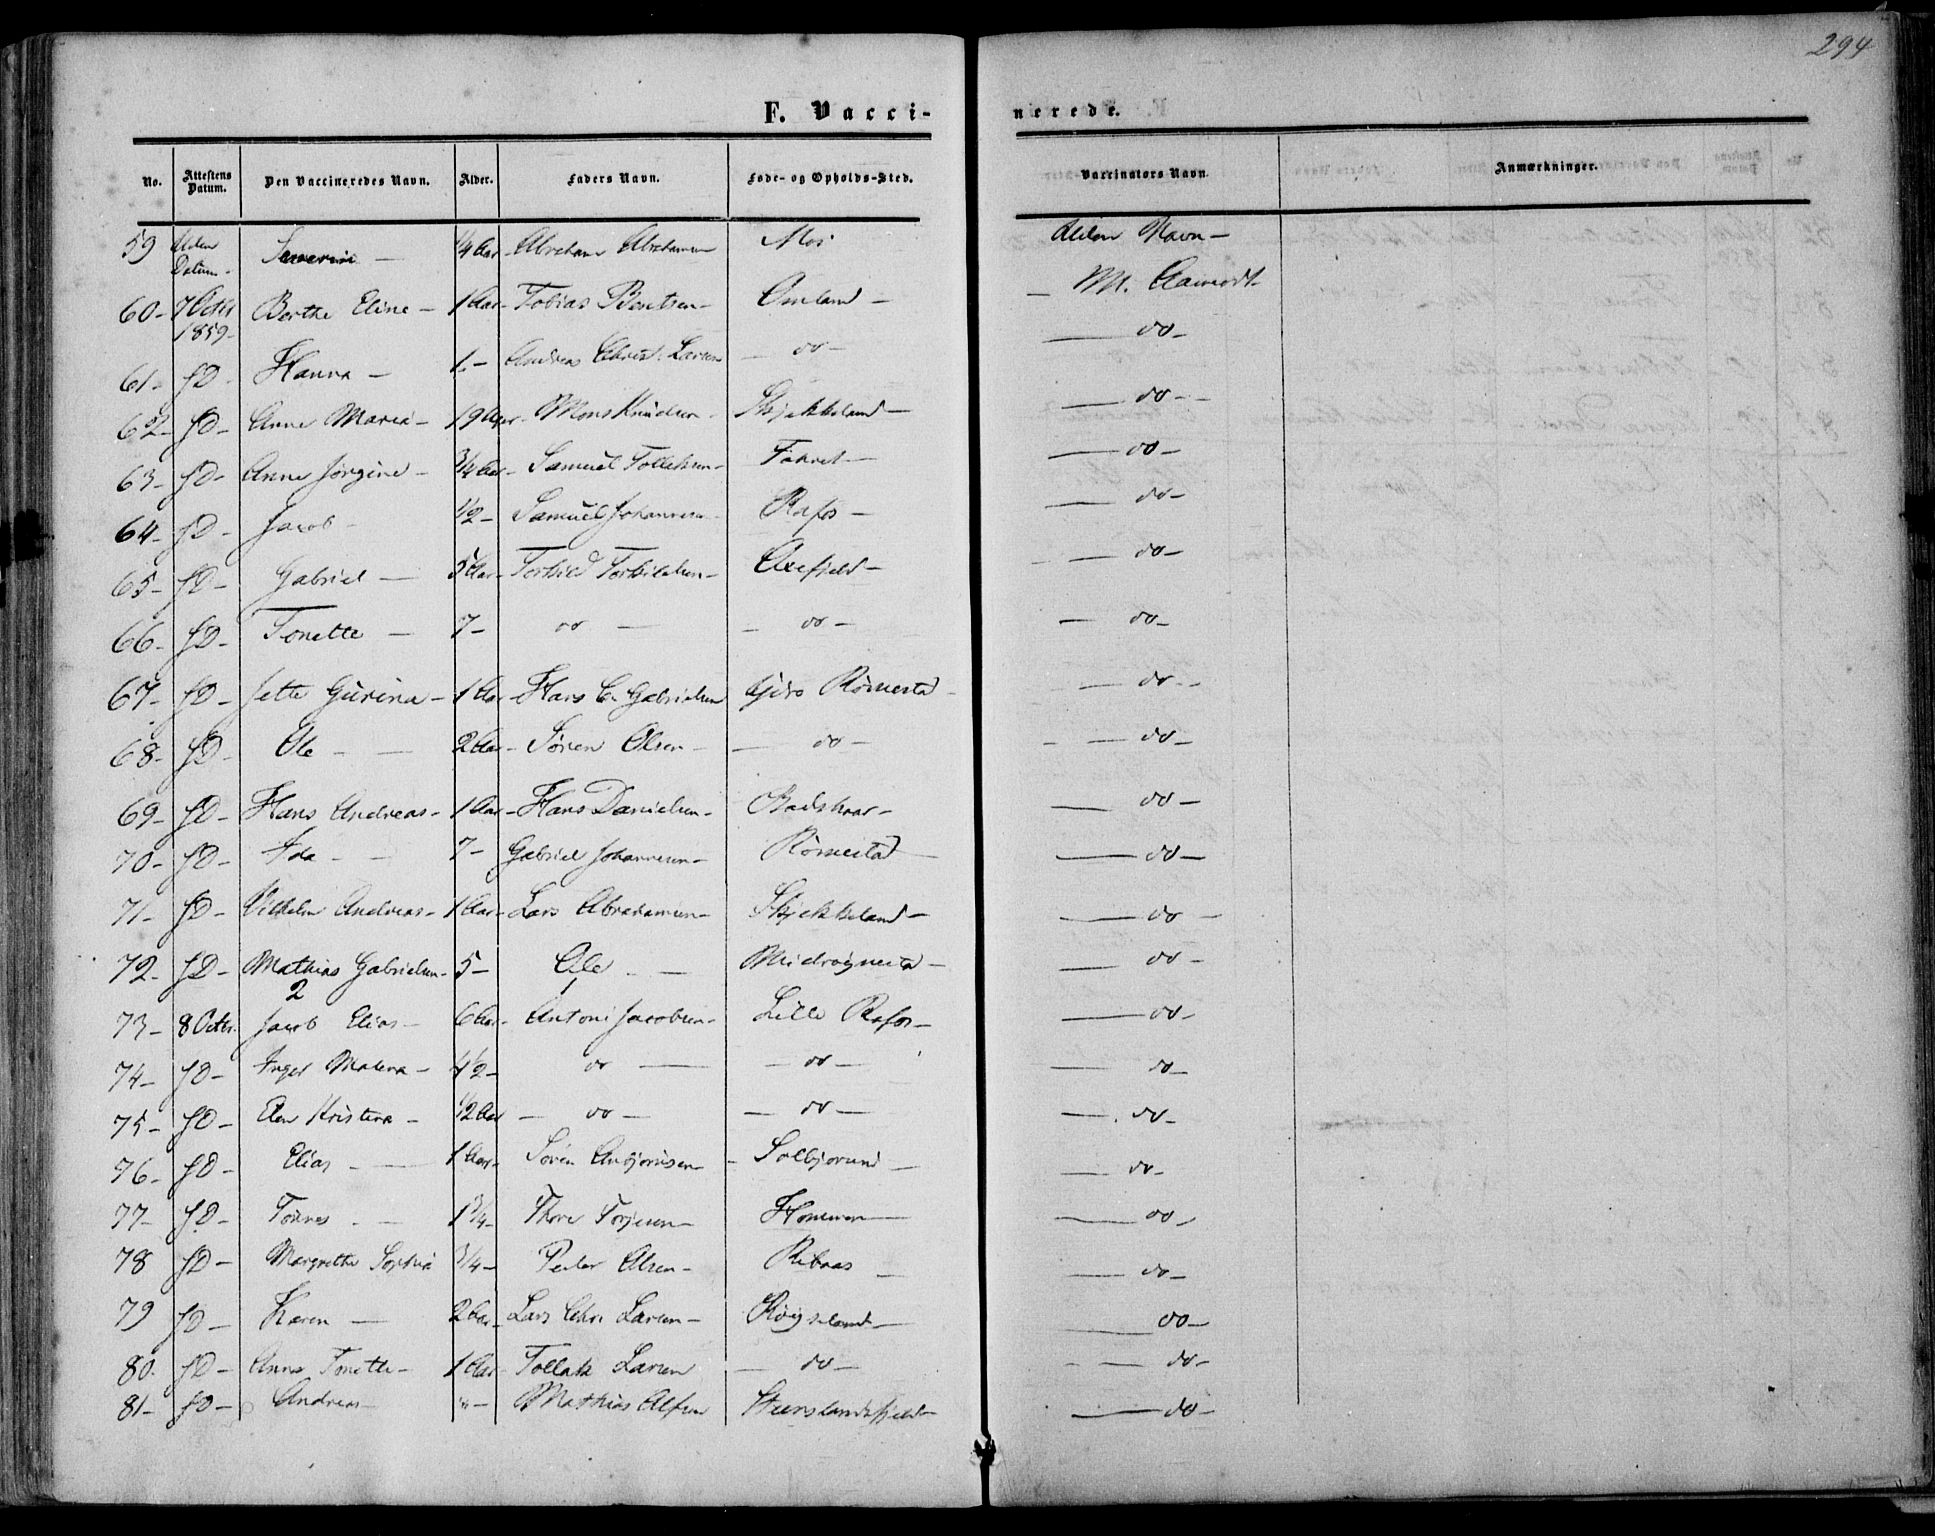 294
F. Vaccinerede.
No. Attestens Datum. Den Vaccineredes Navn. Alder. Faders Navn. Føde- og Opholds-Sted. Vaccinators Navn. Anmærkninger.
59 Uden Datum - Severin - 1/4 Aar - Abraham Abrahamsen Moi Uden Navn -
60 - 7 Octbr 1859 - Berthe Eline - 1 Aar - Tobias Berntsen - Omland - M.
61 - fD - Hanna - 1 - Andreas Christ. Larsen - do - do -
62 - fD - Anne Maria - 19 Aar - Mons Knudsen - Skjekkeland - do -
63 - fD - Anne Jørgine - 3/4 Aar - Samuel Tollaksen - do -
64 - fD - Jacob - 1/2 - Samuel Johannesen - Rafos - do -
65 - fD - Gabriel - 5 Aar - Torkild Torkildsen - do -
66 - fD - Tonette - 7 - do - do - do -
67 - fD - Jette Gurina - 1 Aar - Hans C. Gabrielsen Rømestad - do -
68 - fD - Ole - 2 Aar - Sören Olsen - do - do -
69 - fD - Hans Andreas - 1 Aar - Hans Danielsen - do -
70 - fD - Ida - 7 - Gabriel Johannesen - Rømestad do -
71 - fD - Vilhelm Andreas - 1 Aar - Lars Abrahamsen - Skjekkeland - do -
72 - fD - Mathias Gabrielsen - 5 - Ole - do -
2 1
73 - 8 Octbr. Jacob Elias - 6 Aar - Antoni Jacobsen - Lille Rafos - do -
74 - fD - Inger Malena - 4 1/2 - do - do - do -
75 - fD - Elen Kristina - 1/2 Aar - do - do - do -
76 - fD - Elias - 1 Aar - Sören Asbjørnsen - do -
77 - fD - Tönnes - 1 3/4 - Thore Torjusen - do -
78 fD - Margrethe Sophia 3/4 - Peder Olsen - Ribaas - do -
79 fD - Karen - 2 Aar - Lars Chr. Larsen - Røiseland - do -
80. fD - Anne Tonette - 1 Aar - Tollak Larsen - do - do -
81 - fD - Andreas - " - Mathias do -